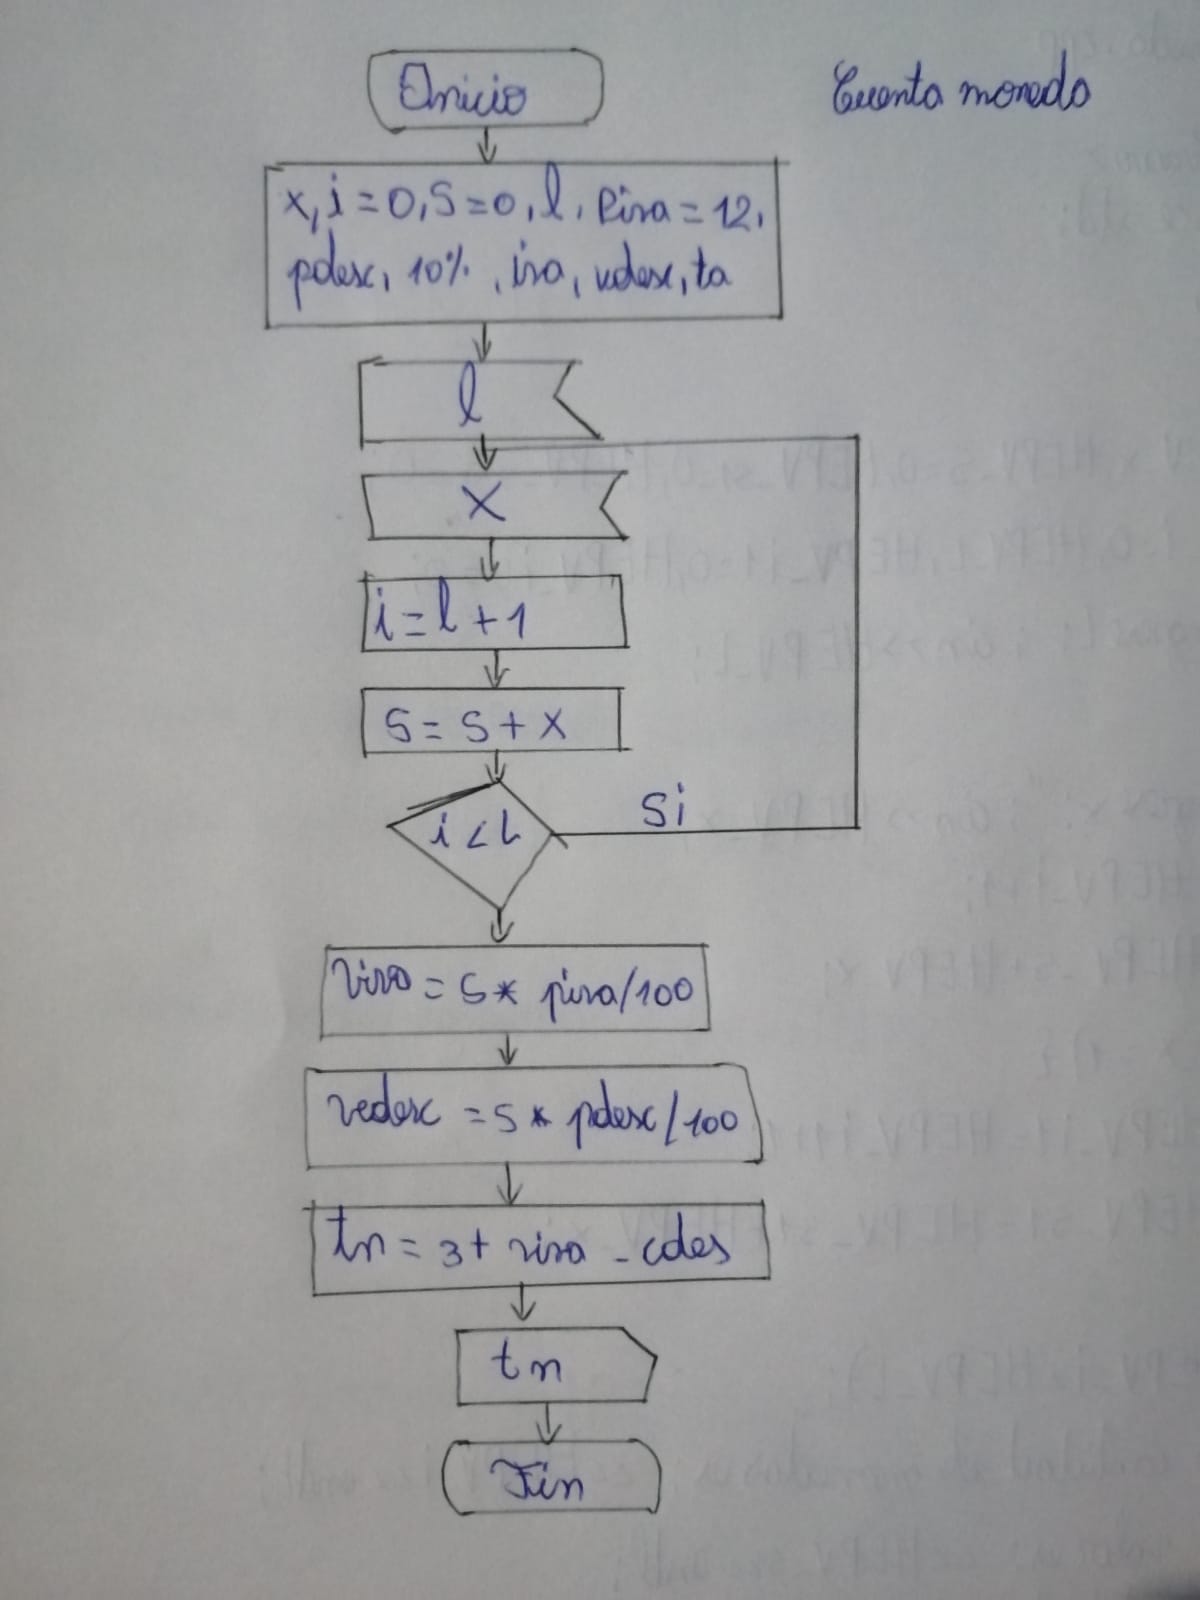 Inicio
Cuenta moneda
x, i = 0, S = 0, l, Piva = 12,
pdesc, 10%, iva, vdesc, ta
l
X
i = l + 1
S = S + X
i < L
Si
viva = S * piva/100
vedesc = S * pdesc/100
tn = 3 + viva - cdes
tn
Fin